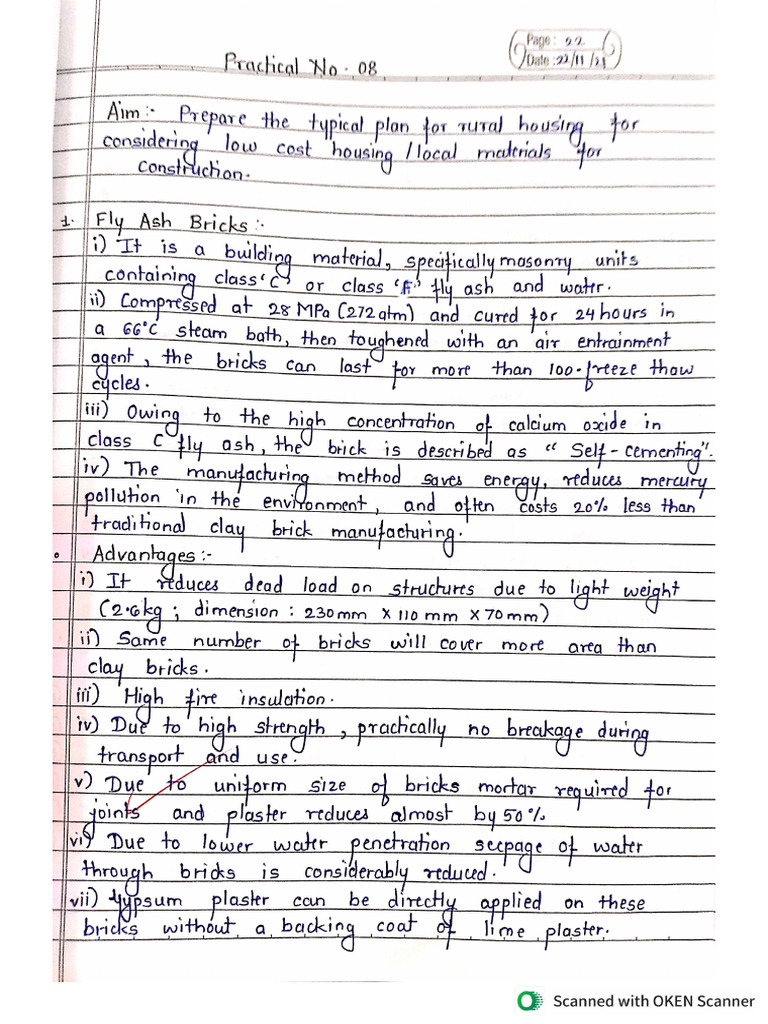 Page: 22
Date: 22/11/21
Practical No. 08
Aim:- Prepare the typical plan for rural housing for
considering low cost housing /local materials for
construction.
1. Fly Ash Bricks :-
i) It is a building material, specifically masonry units
containing class 'C' or class 'F' fly ash and water.
ii) Compressed at 28 MPa (272 atm) and cured for 24 hours in
a 66°C steam bath, then toughened with an air entrainment
agent, the bricks can last for more than 100-freeze thaw
cycles.
iii) Owing to the high concentration of calcium oxide in
class C fly ash, the brick is described as "Self-cementing".
iv) The manufacturing method saves energy, reduces mercury
pollution in the environment, and often costs 20% less than
traditional clay brick manufacturing.
Advantages :-
i) It reduces dead load on structures due to light weight
(2.6kg ; dimension : 230mm x 110 mm x 70mm)
ii) Same number of bricks will cover more area than
clay bricks.
iii) High fire insulation.
iv) Due to high strength, practically no breakage during
transport and use.
v) Due to uniform size of bricks mortar required for
joints and plaster reduces almost by 50%.
vi) Due to lower water penetration seepage of water
through bricks is considerably reduced.
vii) Gypsum plaster can be directly applied on these
bricks without a backing coat of lime plaster.
Scanned with OKEN Scanner